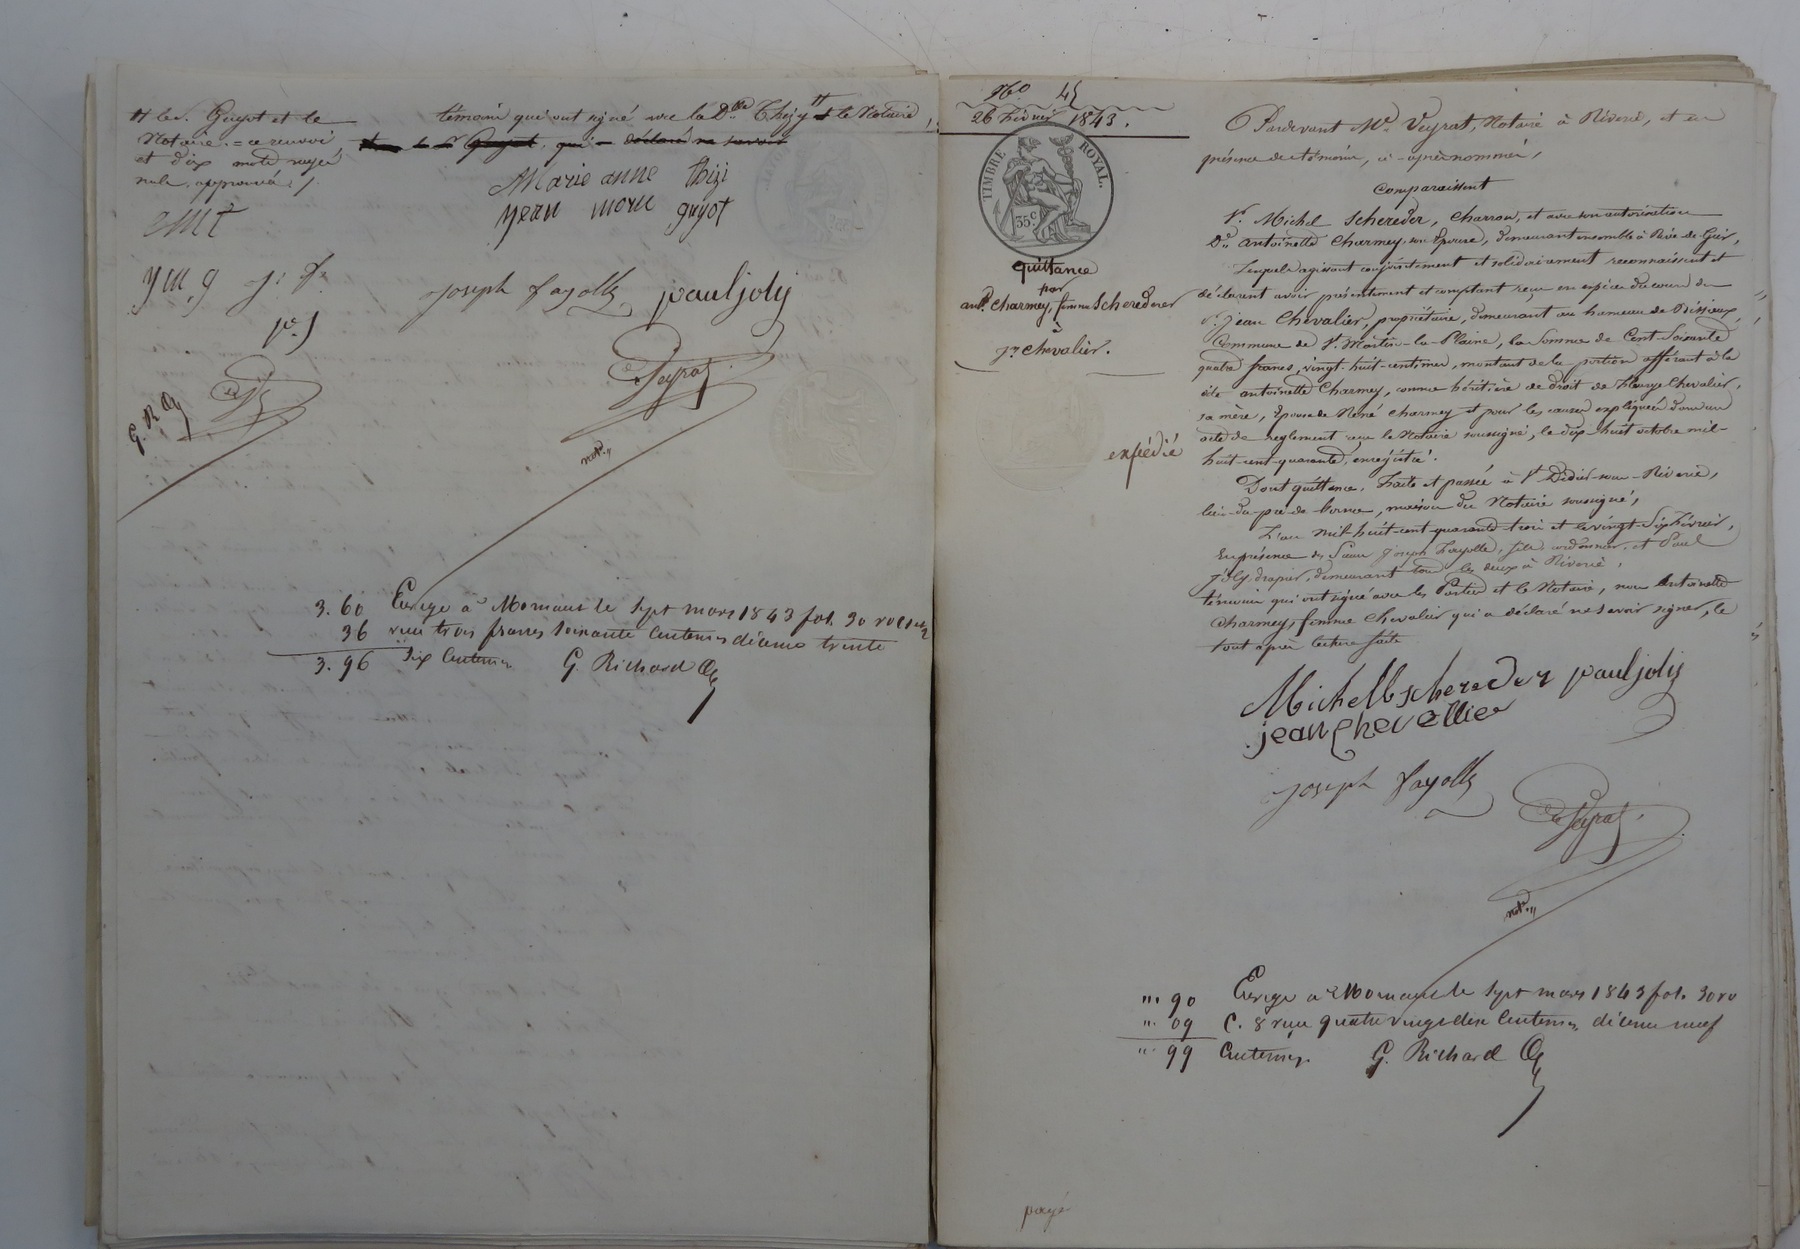 # le s. Guyot et le
Notaire. = ce renvoi
et dix mots rayés
nuls, approuvés /.
témoins qui ont signé avec la Dlle Thizy # et le Notaire,
le sr Guyot, qui a déclaré ne savoir
Marie anne thizi
jean marie guyot
amt
jm, g j. f.
joseph fayolle paul jolij
p. J
Veyrat
G. R
notre.
3. 60 Enregé à Mornant le sept mars 1843 fol. 30 vo
36 reçu trois francs soixante centimes décime trente
3. 96 six centimes G. Richard
No 45
26 Février 1843.
TIMBRE ROYAL.
35c
Quittance
par
antte Charmey, femme Schereder
à
jn Chevalier.
expédié
Pardevant Me Veyrat, Notaire à Riverie, et en
présence des témoins, ci-après nommés,
Comparaissent
Sr. Michel Schereder, charron, et avec son autorisation
De antoinette Charmey, son épouse, demeurant ensemble à Rive-de-Gier,
Lesquels agissant conjointement et solidairement reconnaissent et
déclarent avoir présentement et comptant reçu en espèces du cours de
sr. jean Chevalier, propriétaire, demeurant au hameau de Bissieux,
Commune de St. Martin-la-Plaine, la somme de Cent soixante
quatre francs, vingt-huit-centimes, montant de la portion afférant à la
dite antoinette Charmey, comme héritière de droit de Fleurye Chevalier,
sa mère, épouse de René Charmey et pour les causes expliquées dans un
acte de règlement reçu le Notaire soussigné, le dix-huit octobre mil-
huit-cent-quarante, enregistré.
Dont quittance. Faite et passée à St Didier-sous-Riverie,
lieu-du-pré-de borne, maison du Notaire soussigné,
L'an mil huit-cent quarante trois et le vingt-six Février,
En présence des sieurs joseph Fayolle, fils, cordonnier, et Paul
joly, drapier, demeurant tous les deux à Riverie,
témoins qui ont signé avec les Parties et le Notaire, non Antoinette
Charmey, femme Chevalier qui a déclaré ne savoir signer, le
tout après lecture faite
Michel schereder paul jolij
jean chevallier
joseph fayolle
Veyrat
notre.
" 90 Enregé à Mornant le sept mars 1843 fol. 30 vo
" 09 C. 8 reçu quatre vingt dix centimes, décime neuf
" 99 centimes. G. Richard
payé